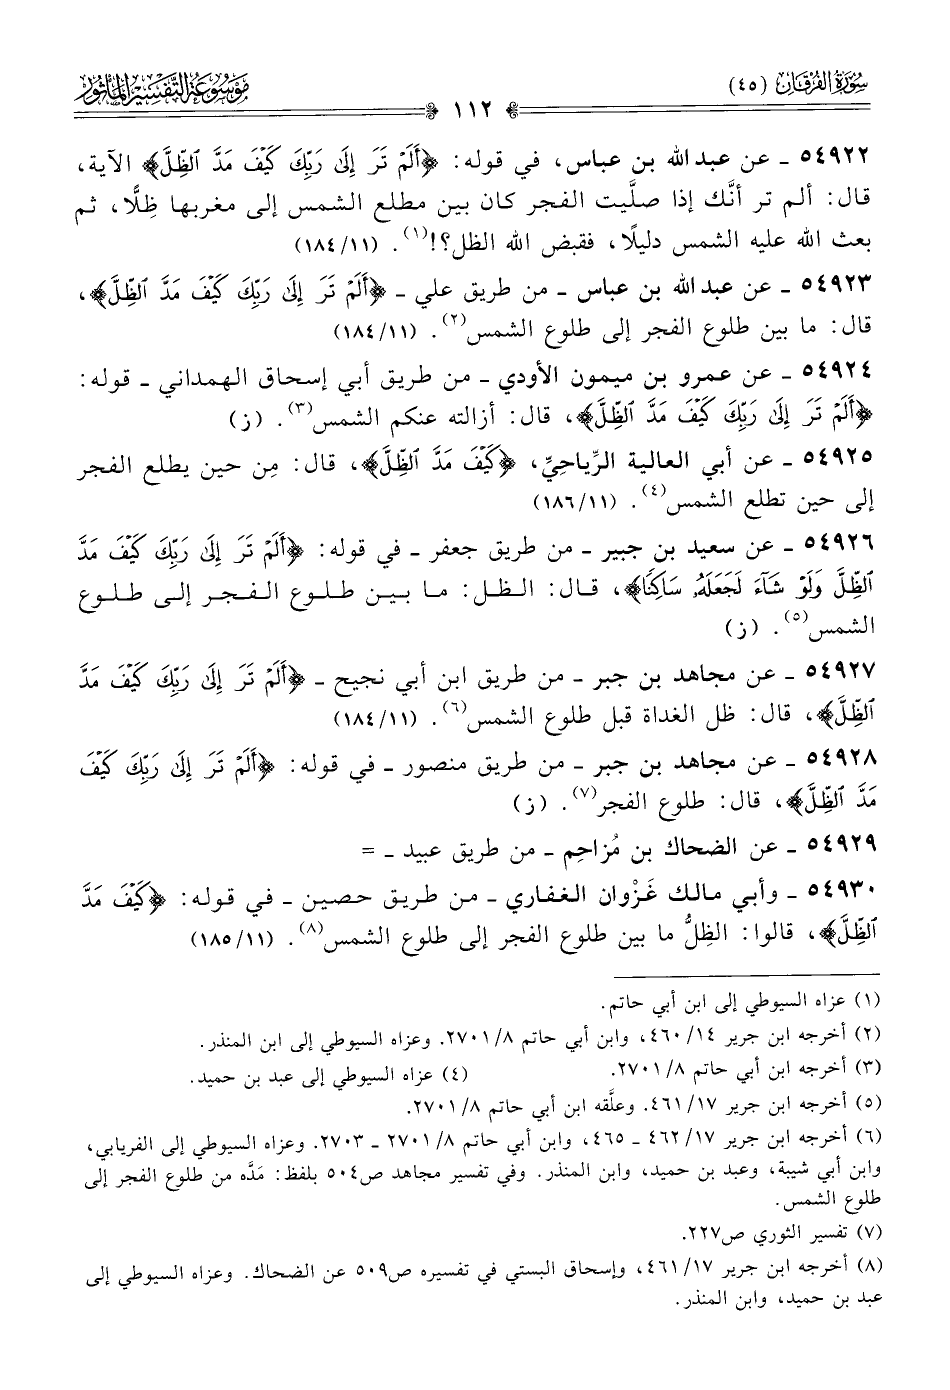 سُورَةُ الفُرْقَان (٤٥)
مَوْسُوعَة التَّفْسِيرِ المَأْثُور
١١٢
٥٤٩٢٢ ـ عن عبد الله بن عباس، في قوله: ﴿أَلَمْ تَرَ إِلَىٰ رَبِّكَ كَيْفَ مَدَّ ٱلظِّلَّ﴾ الآية،
قال: ألم تر أنَّك إذا صلَّيت الفجر كان بين مطلع الشمس إلى مغربها ظِلًّا، ثم
بعث الله عليه الشمس دليلًا، فقبض الله الظل؟!(١). (١١/ ١٨٤)
٥٤٩٢٣ ـ عن عبد الله بن عباس ـ من طريق علي ـ ﴿أَلَمْ تَرَ إِلَىٰ رَبِّكَ كَيْفَ مَدَّ ٱلظِّلَّ﴾،
قال: ما بين طلوع الفجر إلى طلوع الشمس(٢). (١١/ ١٨٤)
٥٤٩٢٤ ـ عن عمرو بن ميمون الأودي ـ من طريق أبي إسحاق الهمداني ـ قوله:
﴿أَلَمْ تَرَ إِلَىٰ رَبِّكَ كَيْفَ مَدَّ ٱلظِّلَّ﴾، قال: أزالته عنكم الشمس(٣). (ز)
٥٤٩٢٥ ـ عن أبي العالية الرِّياحِيِّ، ﴿كَيْفَ مَدَّ ٱلظِّلَّ﴾، قال: مِن حين يطلع الفجر
إلى حين تطلع الشمس(٤). (١١/ ١٨٦)
٥٤٩٢٦ ـ عن سعيد بن جبير ـ من طريق جعفر ـ في قوله: ﴿أَلَمْ تَرَ إِلَىٰ رَبِّكَ كَيْفَ مَدَّ
ٱلظِّلَّ وَلَوْ شَآءَ لَجَعَلَهُۥ سَاكِنًا﴾، قال: الظل: ما بين طلوع الفجر إلى طلوع
الشمس(٥). (ز)
٥٤٩٢٧ ـ عن مجاهد بن جبر ـ من طريق ابن أبي نجيح ـ ﴿أَلَمْ تَرَ إِلَىٰ رَبِّكَ كَيْفَ مَدَّ
ٱلظِّلَّ﴾، قال: ظل الغداة قبل طلوع الشمس(٦). (١١/ ١٨٤)
٥٤٩٢٨ ـ عن مجاهد بن جبر ـ من طريق منصور ـ في قوله: ﴿أَلَمْ تَرَ إِلَىٰ رَبِّكَ كَيْفَ
مَدَّ ٱلظِّلَّ﴾، قال: طلوع الفجر(٧). (ز)
٥٤٩٢٩ ـ عن الضحاك بن مُزاحِم ـ من طريق عبيد ـ =
٥٤٩٣٠ ـ وأبي مالك غَزْوان الغفاري ـ من طريق حصين ـ في قوله: ﴿كَيْفَ مَدَّ
ٱلظِّلَّ﴾، قالوا: الظِلُّ ما بين طلوع الفجر إلى طلوع الشمس(٨). (١١/ ١٨٥)
(١) عزاه السيوطي إلى ابن أبي حاتم.
(٢) أخرجه ابن جرير ١٤/ ٤٦٠، وابن أبي حاتم ٨/ ٢٧٠١. وعزاه السيوطي إلى ابن المنذر.
(٣) أخرجه ابن أبي حاتم ٨/ ٢٧٠١. (٤) عزاه السيوطي إلى عبد بن حميد.
(٥) أخرجه ابن جرير ١٧/ ٤٦١. وعلَّقه ابن أبي حاتم ٨/ ٢٧٠١.
(٦) أخرجه ابن جرير ١٧/ ٤٦٢ ـ ٤٦٥، وابن أبي حاتم ٨/ ٢٧٠١ ـ ٢٧٠٣. وعزاه السيوطي إلى الفريابي،
وابن أبي شيبة، وعبد بن حميد، وابن المنذر. وفي تفسير مجاهد ص٥٠٤ بلفظ: مَدَّه من طلوع الفجر إلى
طلوع الشمس.
(٧) تفسير الثوري ص٢٢٧.
(٨) أخرجه ابن جرير ١٧/ ٤٦١، وإسحاق البستي في تفسيره ص٥٠٩ عن الضحاك. وعزاه السيوطي إلى
عبد بن حميد، وابن المنذر.